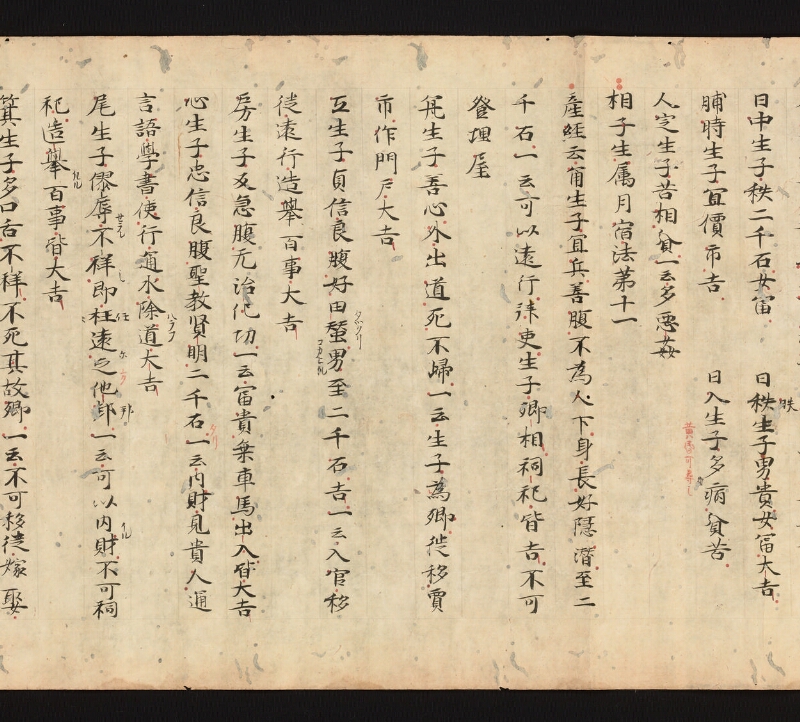 日中生子秩二千石女富 日秩生子男貴女富大吉
晡時生子冝價市吉 日入生子多病貧苦
人定生子苦相貧一云多惡姧
相子生属月宿法第十一
產經云角生子冝兵善腹不為人下身長好隱潛至二
千石一云可以遠行祑吏生子卿相祠祀皆吉不可
登埋屋
亢生子善心外出道死不歸一云生子為卿從移賈
市作門戶大吉
互生子貞信良腹好田蠶男至二千石吉一云入官移
徙遠行造舉百事大吉
房生子反急腹亢治化功一云富貴乗車馬出入皆大吉
心生子忠信良腹聖教賢明二千石一云内財見貴人通
言語學書使行通水除道大吉
尾生子僇辱不祥即枉遠之他邦一云可以内財不可祠
祀造舉百事皆大吉
箕生子多口舌不祥不死其故鄉一云不可移徙嫁娶